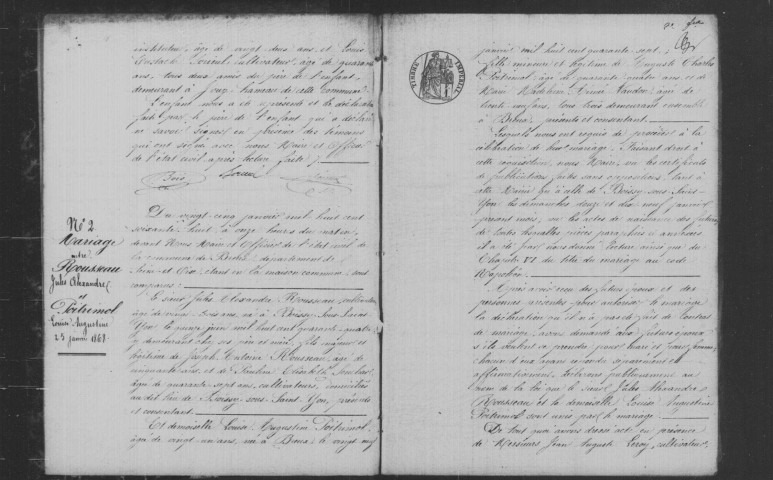 instituteur, âgé de vingt deux ans et Louis
cultivateur, âgé de quarante
ans, tous deux amis du père de l'enfant,
demeurant à hameau de cette commune
L'enfant nous a été présenté et la déclaration
faite par le père de l'enfant qui a déclaré
savoir signer en présence des témoins
qui ont signé avec nous Maire et Officier
de l'état civil après lecture faite
N° 2
Mariage
entre
Rousseau
Jules Alexandre
et
Poitrimol
Louise Augustine
25 janvier 1868
Du vingt cinq janvier mil huit cent
soixante huit, à onze heures du matin,
devant Nous Maire et Officier de l'état civil de
la commune de département de
Seine et Oise, étant en la maison commune sont
comparus
Le sieur Jules Alexandre Rousseau, cultivateur
âgé de vingt trois ans, né à Boissy sous Saint
Yon le quinze juin mil huit cent quarante quatre
y demeurant chez ses père et mère, fils majeur et
légitime de Joseph Rousseau, âgé de
ans, et de Elisabeth
âgée de quarante sept ans, cultivateurs, domiciliés
au dit lieu de Boissy sous Saint Yon, présents
et consentant
Et demoiselle Louise Augustine Poitrimol,
âgée de vingt un ans, née à le vingt neuf
TIMBRE IMPERIAL
janvier mil huit cent quarante sept,
fille mineure et légitime de Auguste Charles
Poitrimol âgé de quarante quatre ans et de
Marie Madeleine âgée de
ans, tous trois demeurant ensemble
à présents et consentant
Lesquels nous ont requis de procéder à la
célébration de leur mariage. Faisant droit à
cette réquisition, nous Maire, vu les certificats
de publications faites sans opposition tant à
cette Mairie qu'à celle de Boissy sous Saint
Yon les dimanches douze et dix neuf janvier
présent mois, vu les actes de naissance des futurs,
de toutes lesquelles pièces
il a été par nous donné lecture ainsi que du
Chapitre VI du titre du mariage au code
Napoléon
Après avoir reçu des futurs époux et des
personnes présentes pour autoriser le mariage
la déclaration qu'il n'a pas été fait de contrat
de mariage, avons demandé aux futurs époux
s'ils veulent se prendre pour mari et pour femme,
chacun d'eux ayant répondu séparément et
affirmativement, déclarons publiquement au
nom de la loi que le sieur Jules Alexandre
Rousseau et la demoiselle Louise Augustine
Poitrimol sont unis par le mariage
De tout quoi avons dressé acte en présence
de Messieurs Jean Auguste Leroy, cultivateur,